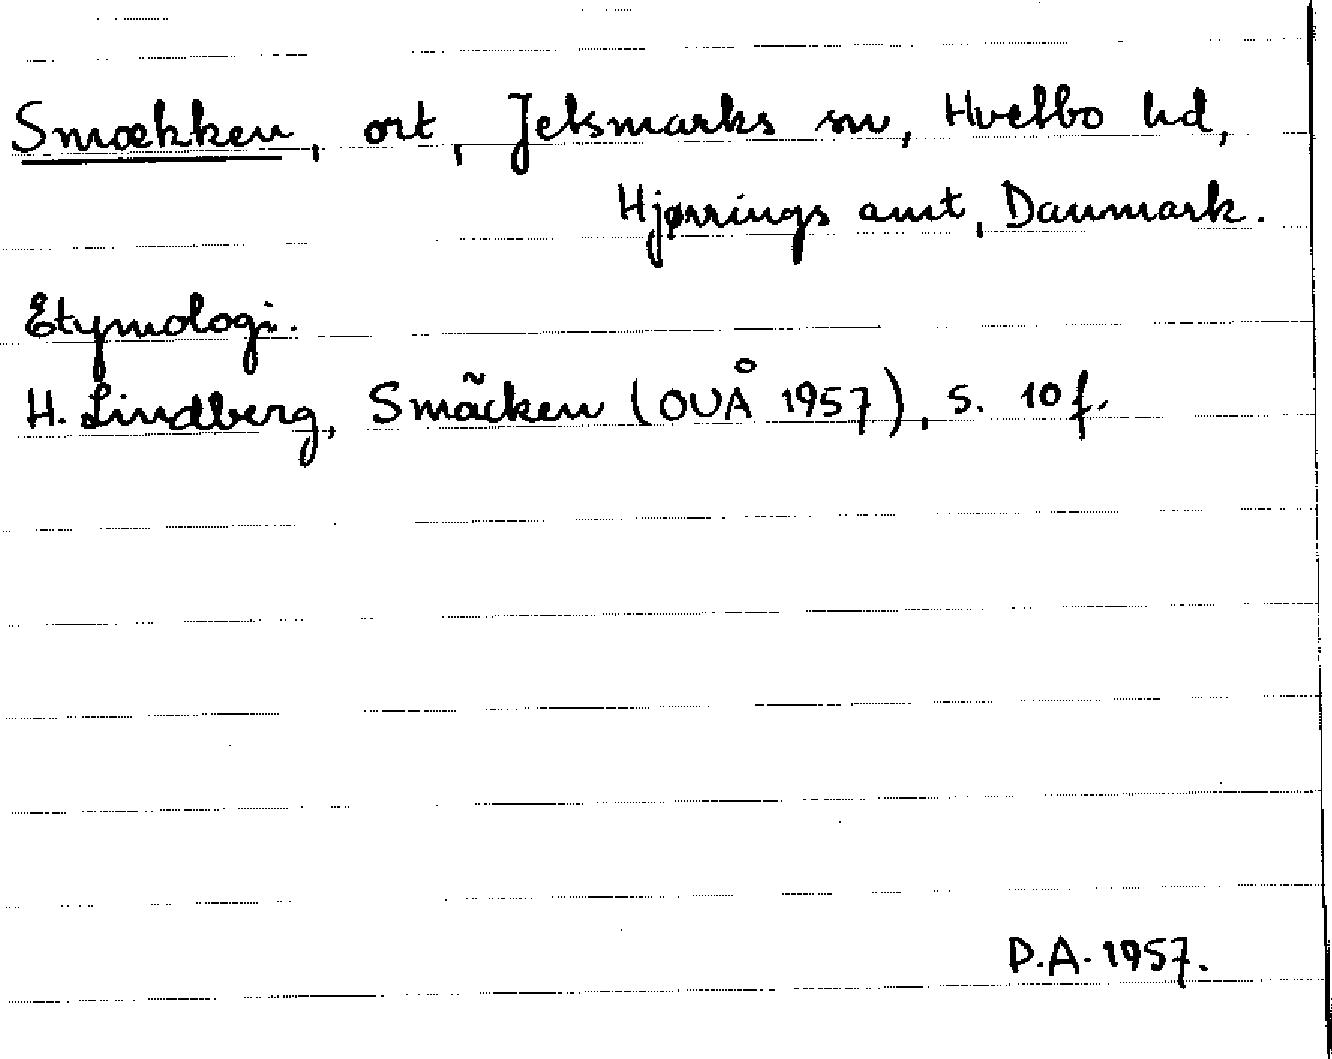 Smækken, ort, Jetsmarks sn, Hvetbo hd,
Hjørrings amt, Danmark.
Etymologi.
H. Lindberg, Smäcken (OUÅ 1957), s. 10 f.
D.A. 1957.